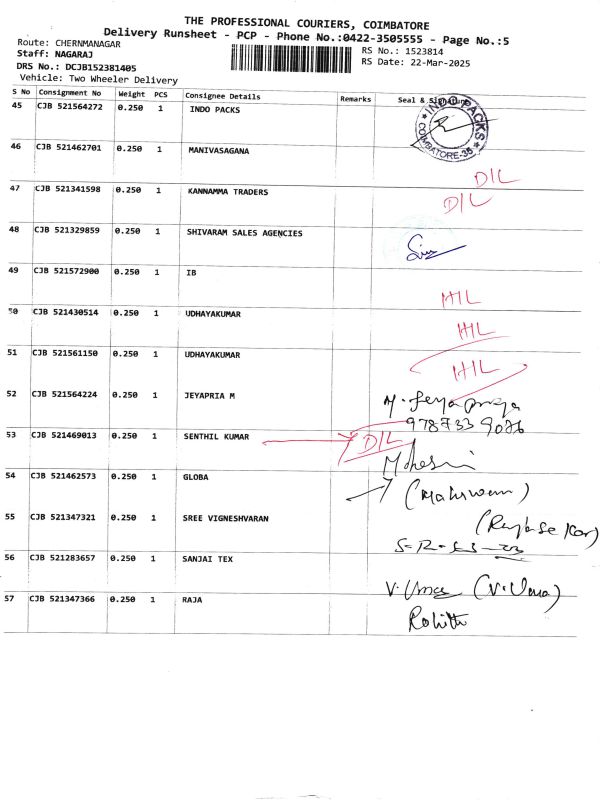 THE PROFESSIONAL COURIERS, COIMBATORE
Delivery Runsheet - PCP - Phone No.:0422-3505555 - Page No.:5
Route: CHERNMANAGAR
Staff: NAGARAJ
DRS No.: DCJB152381405
Vehicle: Two Wheeler Delivery
RS No.: 1523814
RS Date: 22-Mar-2025
S No Consignment No Weight PCS Consignee Details Remarks Seal & Signature
45 CJB 521564272 0.250 1 INDO PACKS
INDO PACKS
COIMBATORE-35
46 CJB 521462701 0.250 1 MANIVASAGANA
D/L
47 CJB 521341598 0.250 1 KANNAMMA TRADERS
D/L
48 CJB 521329859 0.250 1 SHIVARAM SALES AGENCIES
49 CJB 521572900 0.250 1 IB
H/L
50 CJB 521430514 0.250 1 UDHAYAKUMAR
H/L
51 CJB 521561150 0.250 1 UDHAYAKUMAR
H/L
52 CJB 521564224 0.250 1 JEYAPRIA M
M. Jeyapriya
9787339086
53 CJB 521469013 0.250 1 SENTHIL KUMAR D/L
54 CJB 521462573 0.250 1 GLOBA
55 CJB 521347321 0.250 1 SREE VIGNESHVARAN
56 CJB 521283657 0.250 1 SANJAI TEX
V. Uma (V. Uma)
57 CJB 521347366 0.250 1 RAJA
Rohith